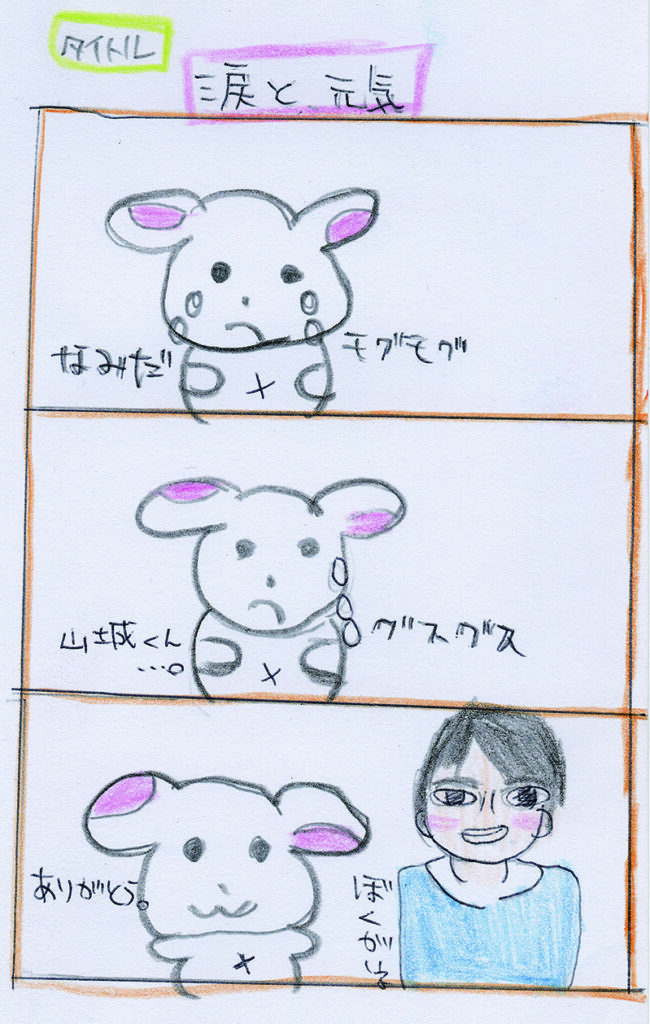 タイトル
涙と元気
なみだ
モグモグ
山城くん
…。
グスグス
ありがとう。
ぼくがいる